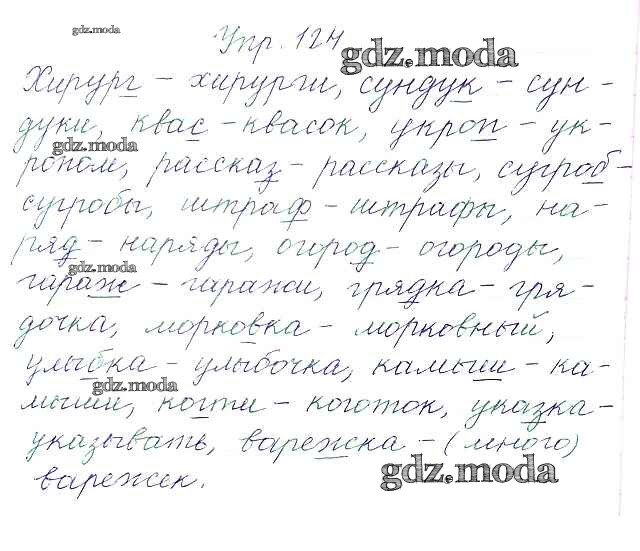 gdz.moda
Упр. 124
gdz.moda
Хирург – хирурги, сундук – сун-
дуки, квас – квасок, укроп – ук-
gdz.moda
ропом, рассказ – рассказы, сугроб –
сугробы, штраф – штрафы, на-
ряд – наряды, огород – огороды,
gdz.moda
гараж – гаражи, грядка – гря-
дочка, морковка – морковный,
улыбка – улыбочка, камыш – ка-
gdz.moda
мыши, когти – коготок, указка –
указывать, варежка – (много)
gdz.moda
варежек.